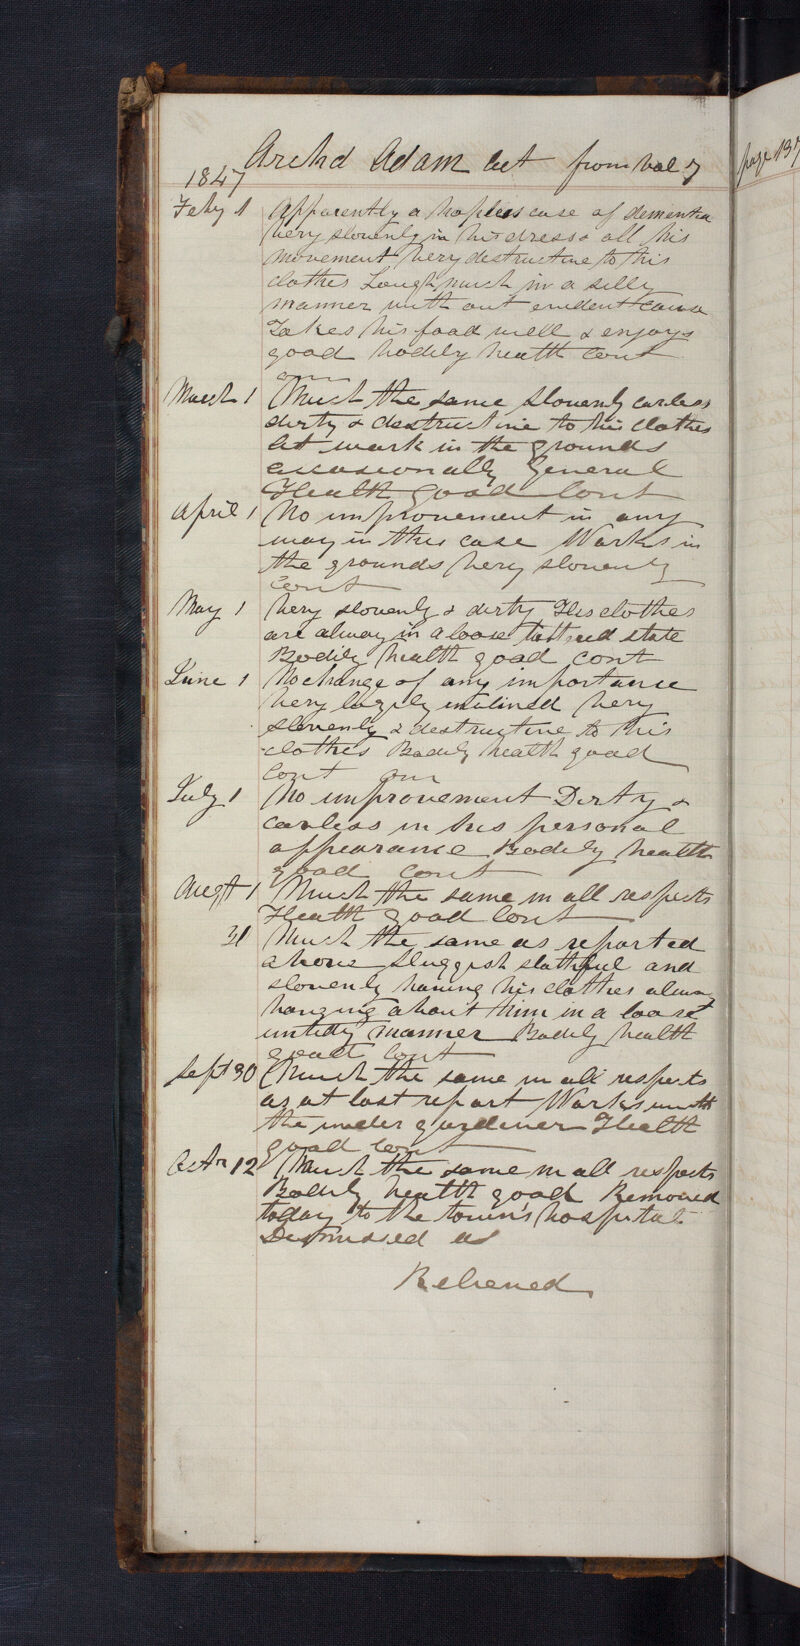 Archd Adam cct from vol 7 page 137
1847
Feby 1 Apparently a hopless case of dementia
Very slovenly in his dress & all his
movement Very destructive to his
clothes Laugh much in a silly
manner with out evident cause
Takes his food well & enjoys
good bodily health Cont
March 1 Much the same Slovenly carless
dirty & destructive to his clothes
At work in the grounds
occasionally General
Health good Cont
April 1 No improvement in any
way in this case Works in
the grounds Very slovenly
Cont
May 1 Very slovenly & dirty His clothes
are alway in a loose tattered state
Bodily health good Cont
June 1 No change of any importance
Very largly inclined Very
slovenly & destructive to his
clothes Bodily health good
Cont
July 1 No improvement Dirty &
carless in his personal
appearance Bodily health
good Cont
Augt 1 Much the same in all respects
Health good Cont
31 Much the same as reported
above Sluggish slothful and
slovenly having his clothes alway
hanging about him in a loose &
untidy manner Bodily health
good Cont
Sept 30 Much the same in all respects
as at last report Works with
the under gardener Health
good Cont
Octr 12 Much the same in all respects
Bodily health good Removed
today to the town's hospital
Dismissed as
Relieved